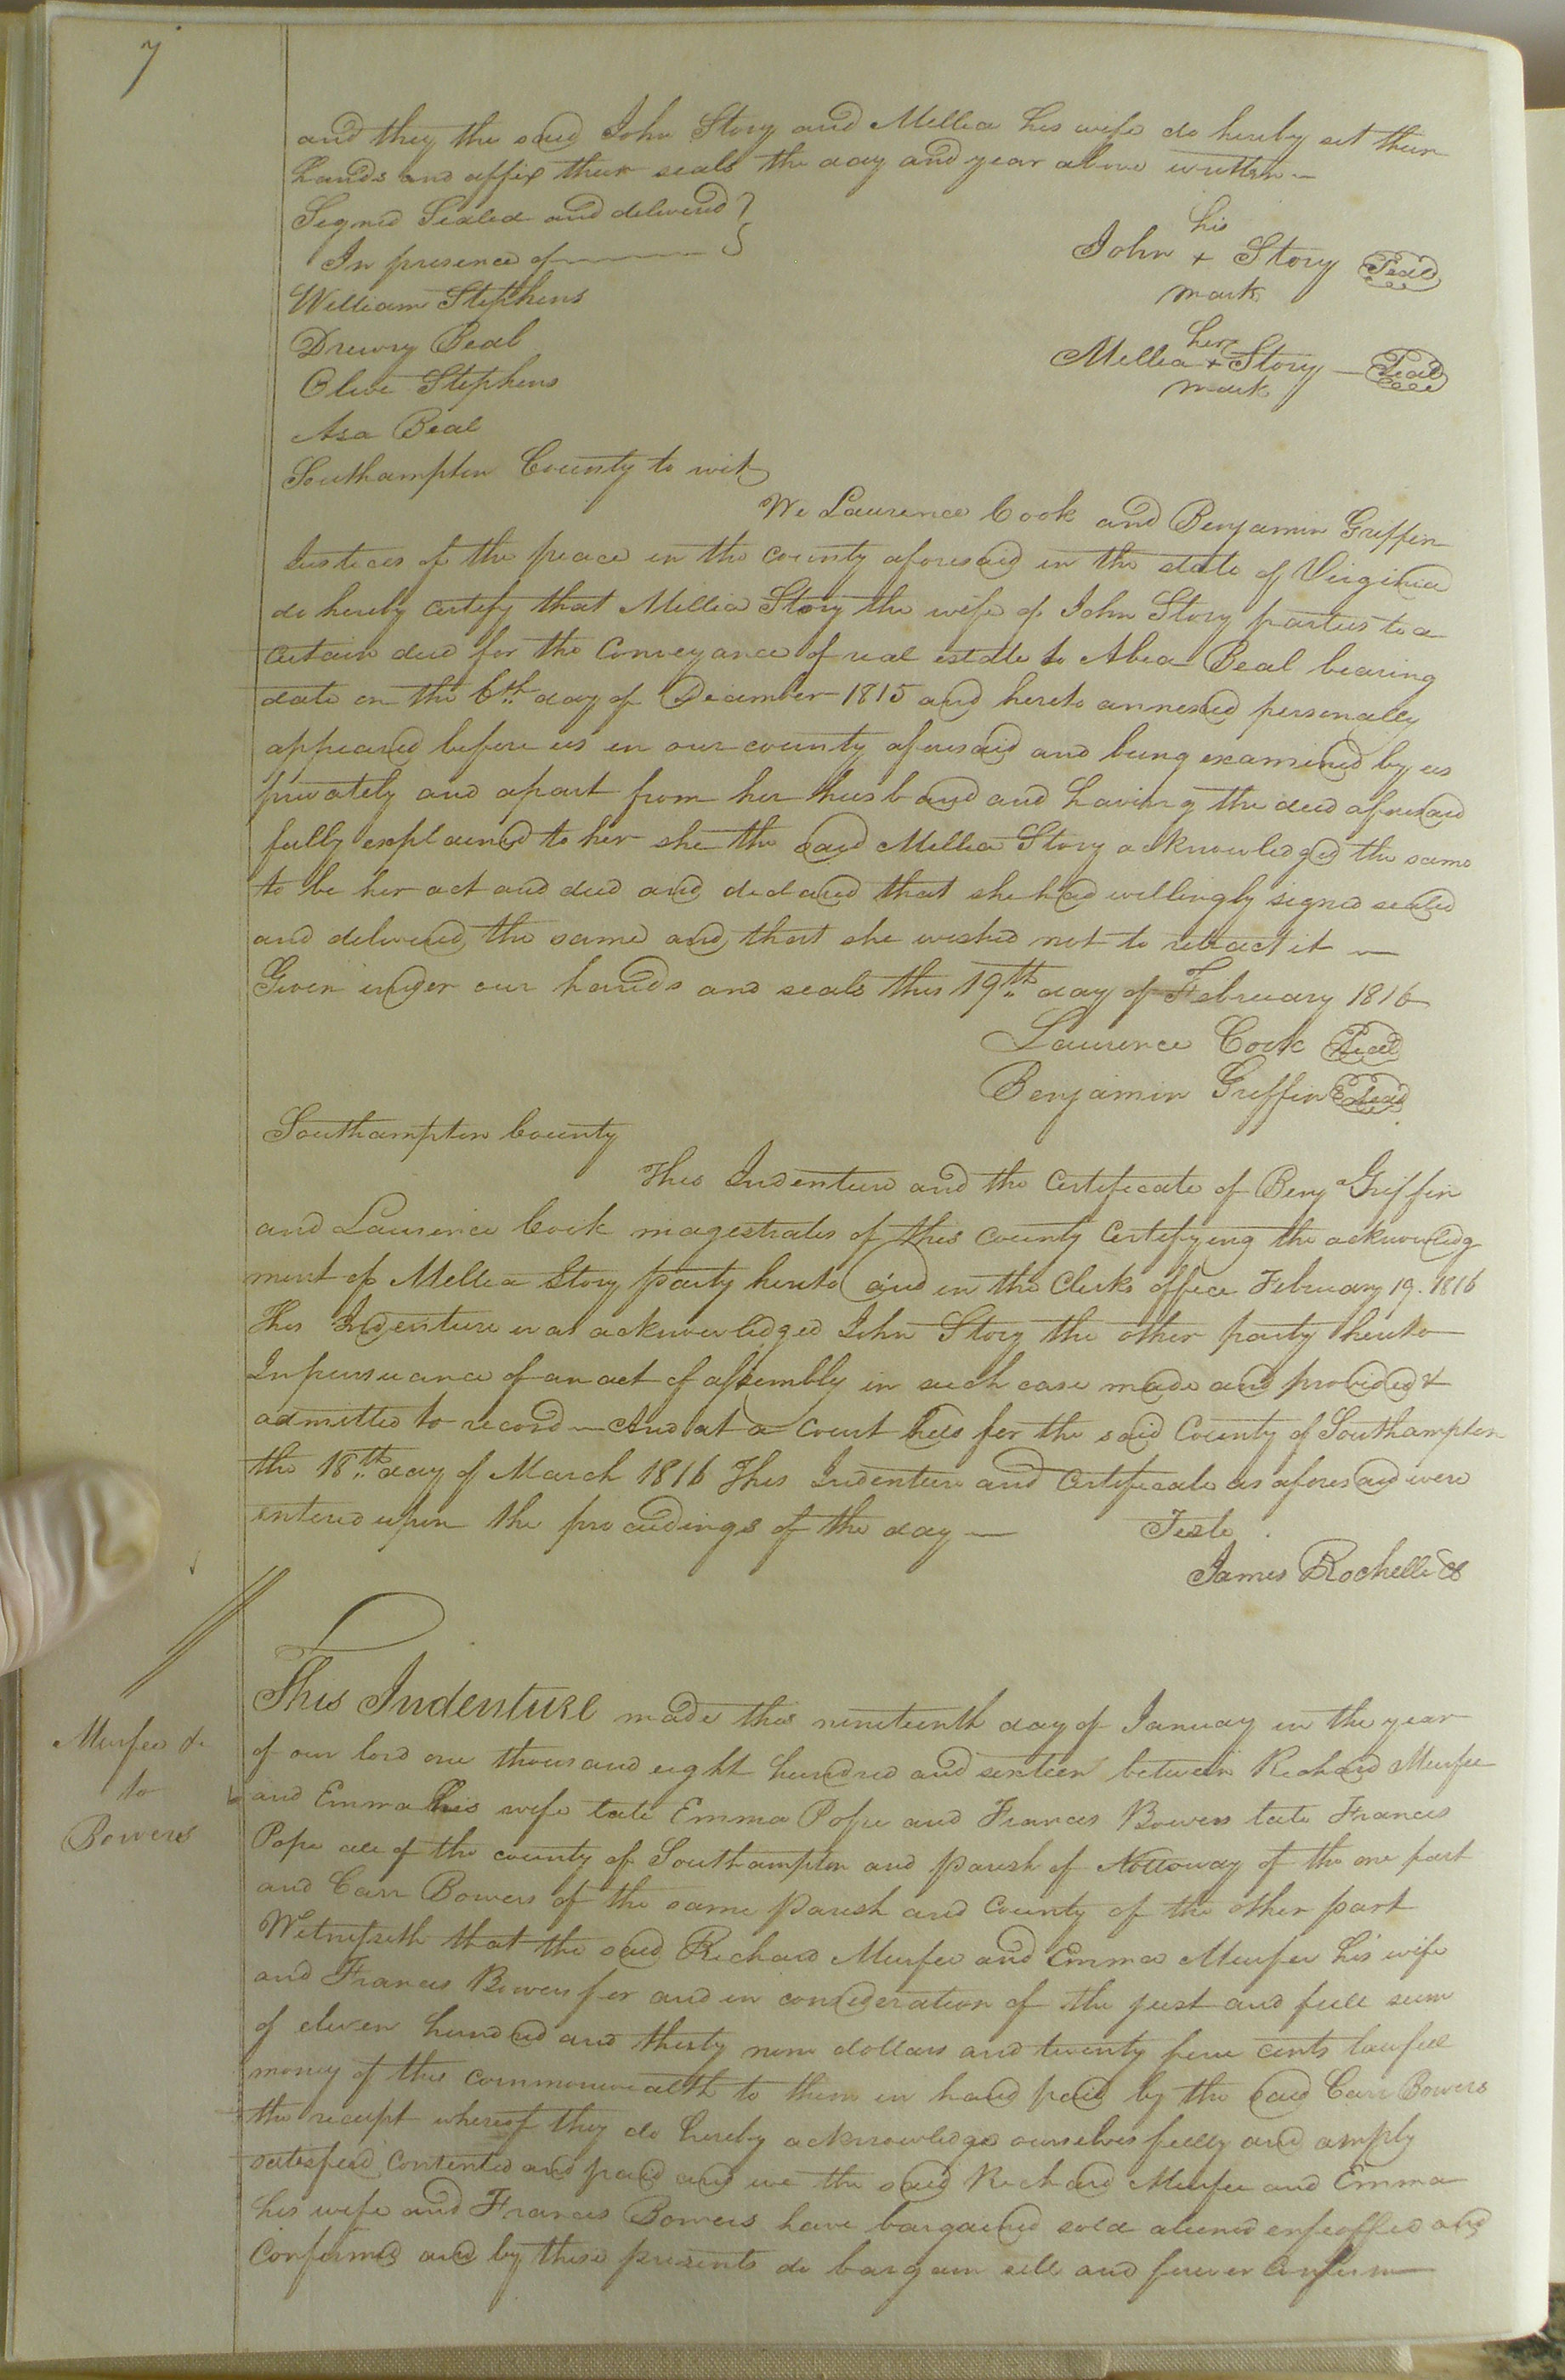 7
and they the said John Story and Millia his wife do hereby set their
hands and affix their seals the day and year above written —
Signed Sealed and delivered }
In presence of
his
John + Story Seal
mark
William Stephens
Drewry Beal
her
Millia + Story — Seal
mark
Olive Stephens
Asa Beal
Southampton County to wit
We Laurence Cook and Benjamin Griffin
Justices of the peace in the county aforesaid in the state of Virginia
do hereby certify that Millia Story the wife of John Story parties to a
certain deed for the Conveyance of real estate to Beal bearing
date on the 6th day of December 1815 and hereto annexed personally
appeared before us in our county aforesaid and being examined by us
privately and apart from her husband and having the deed aforesaid
fully explained to her she the said Millia Story acknowledged the same
to be her act and deed and declared that she had willingly signed sealed
and delivered the same and that she wished not to retract it —
Given under our hands and seals this 19th day of February 1816
Laurence Cook Seal
Benjamin Griffin Seal
Southampton County
This Indenture and the Certificate of Benja Griffin
and Laurence Cook magestrates of this County Certifying the acknowledg
ment of Millia Story party hereto and in the Clerks office February 19. 1816
This Indenture was acknowledged John Story the other party hereto
In pursuance of an act of assembly in such case made and provided &
admitted to record — And at a Court held for the said County of Southampton
the 18th day of March 1816 This Indenture and Certificate as aforesaid were
entered upon the proceedings of the day — Teste
James Rochelle
Murfee &
to
Bowers
This Indenture made this nineteenth day of January in the year
of our lord one thousand eight hundred and sixteen between Richard Murfee
and Emma his wife late Emma Pope and Frances Bowers late Frances
Pope all of the county of Southampton and parish of Nottoway of the one part
and Carr Bowers of the same Parish and County of the other part
Witnesseth that the said Richard Murfee and Emma Murfee his wife
and Frances Bowers for and in consideration of the just and full sum
of eleven hundred and thirty nine dollars and twenty five cents lawful
money of this commonwealth to them in hand paid by the said Carr Bowers
the receipt whereof they do hereby acknowledge ourselves fully and amply
satisfied contented and paid and we the said Richard Murfee and Emma
his wife and Frances Bowers have bargained sold aliened enfeoffed and
Confirmed and by these presents do bargain sell and forever Confirm